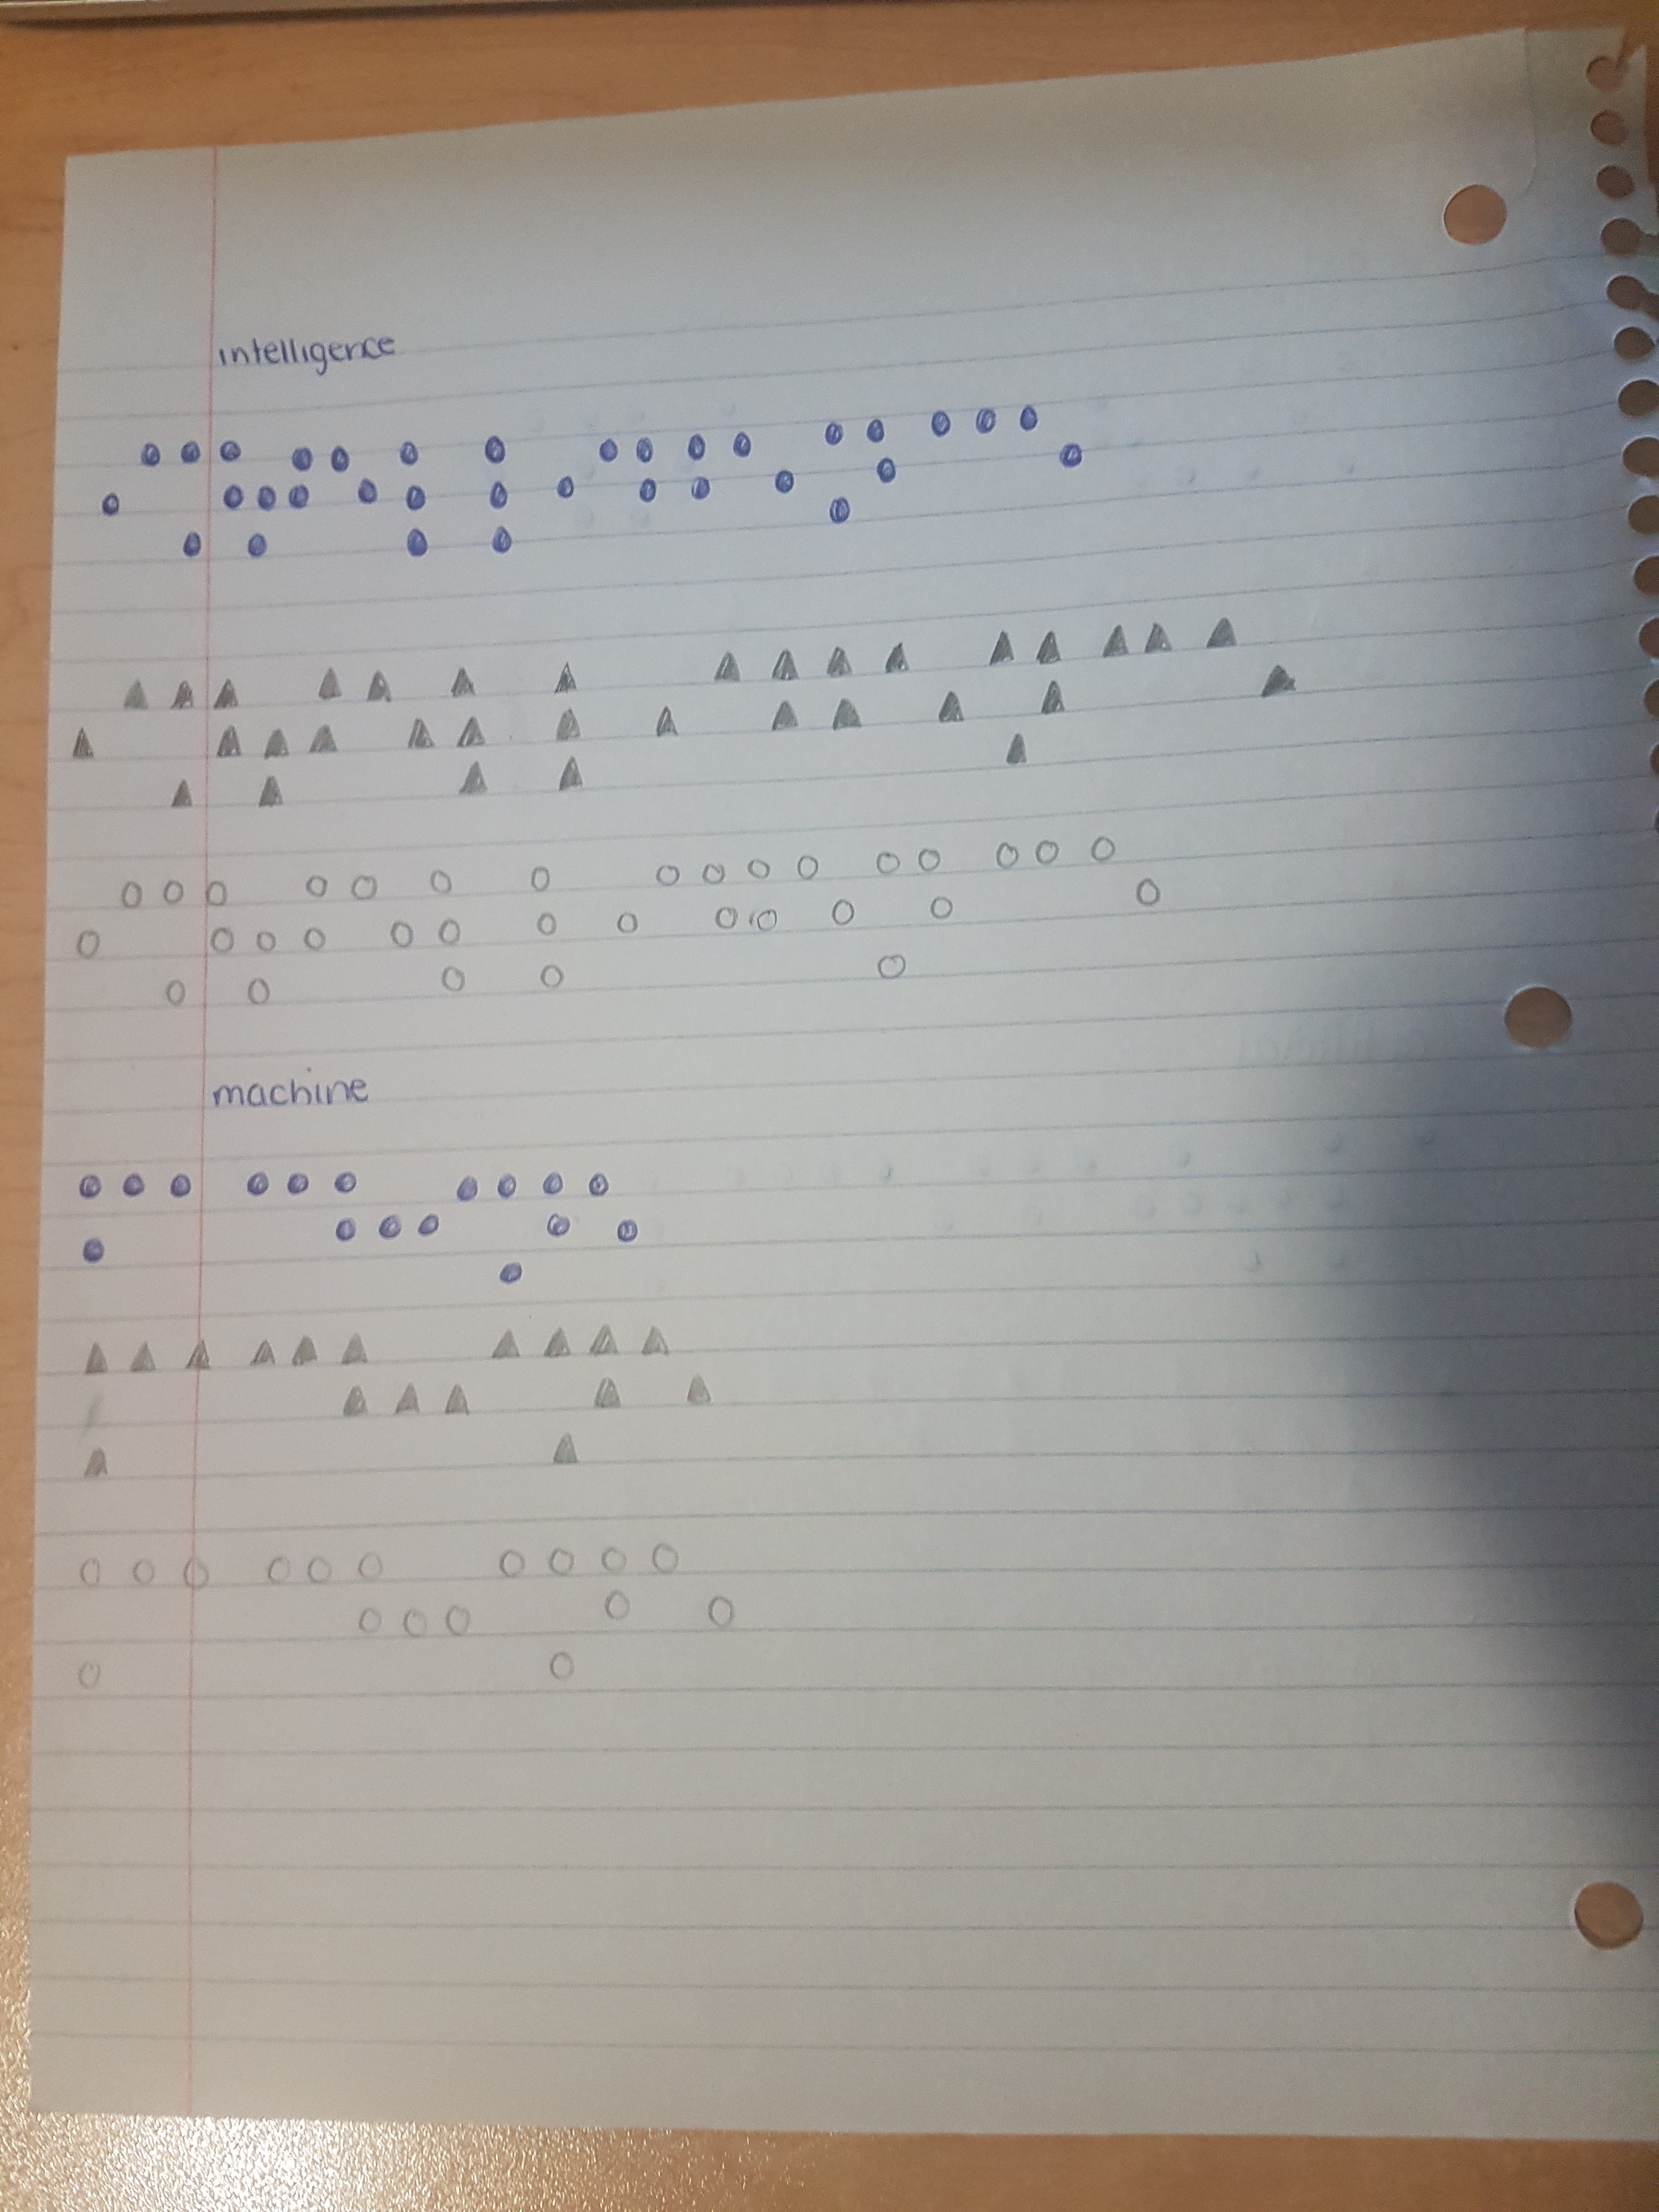 intelligence
⠊⠝⠞⠑⠇⠇⠊⠛⠑⠝⠉⠑
⠊⠝⠞⠑⠇⠇⠊⠛⠑⠝⠉⠑
⠊⠝⠞⠑⠇⠇⠊⠛⠑⠝⠉⠑
machine
⠍⠁⠉⠓⠊⠝⠑
⠍⠁⠉⠓⠊⠝⠑
⠍⠁⠉⠓⠊⠝⠑